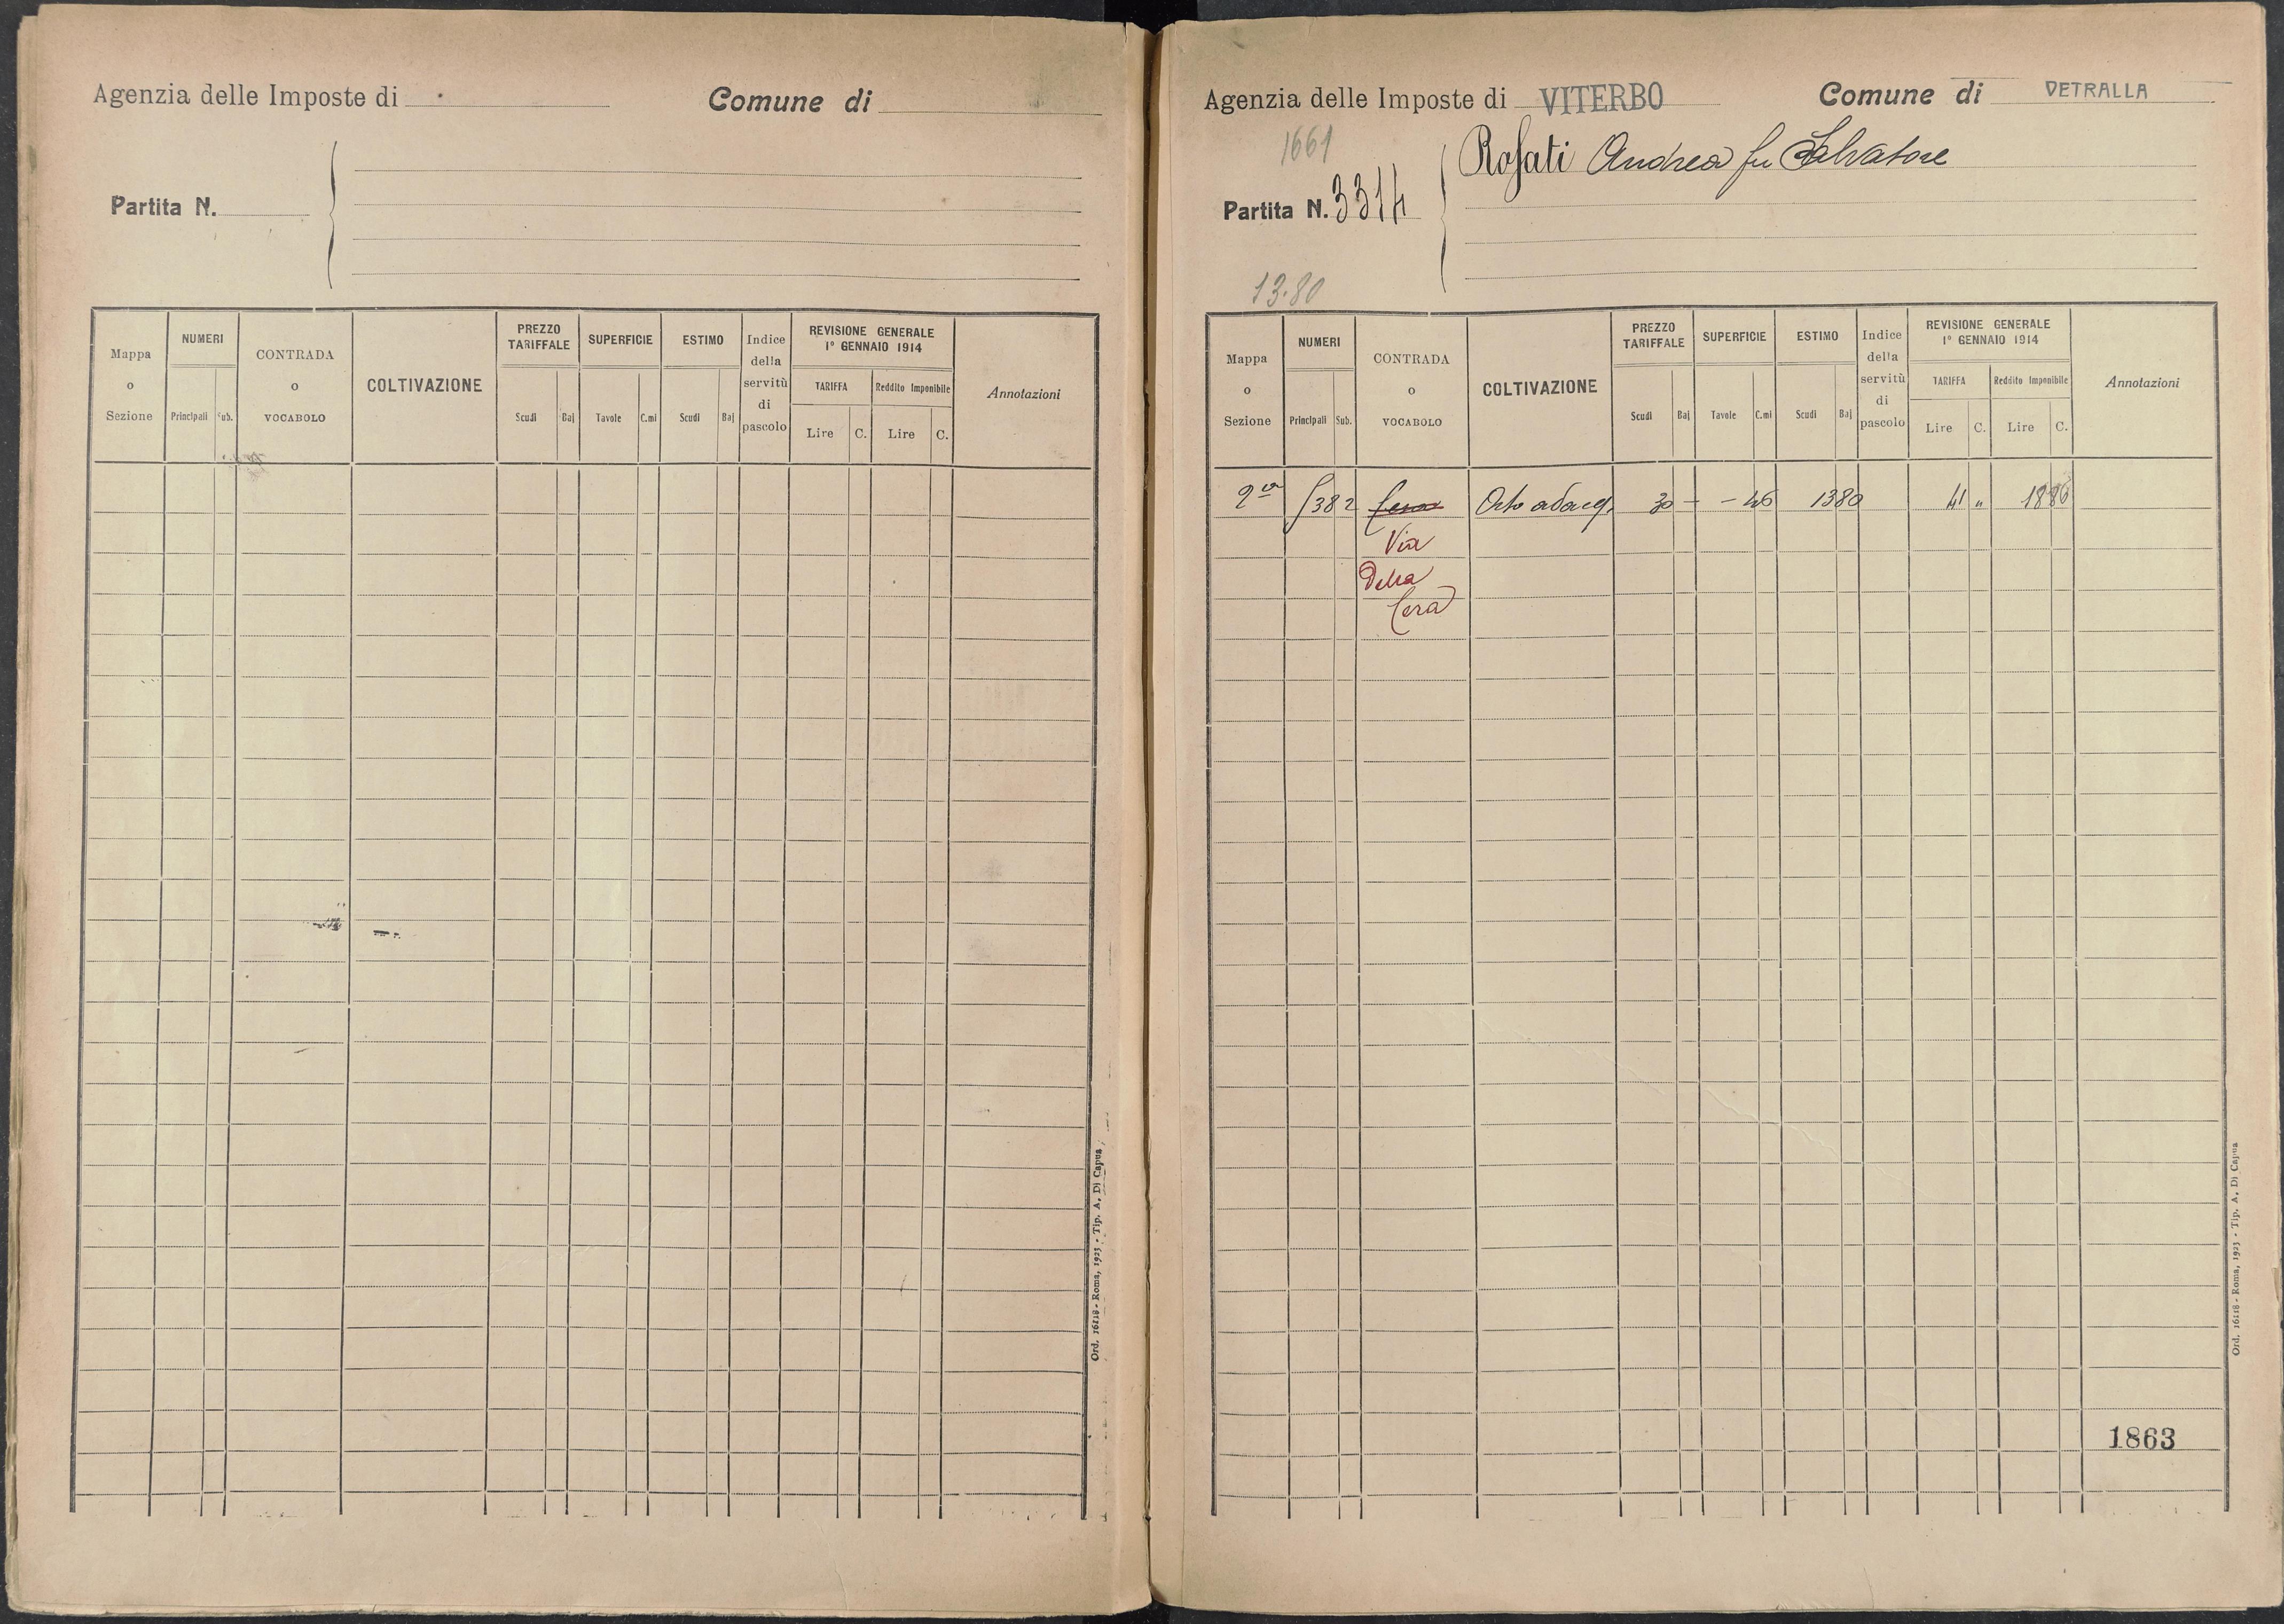 Agenzia delle Imposte di
Comune di
Partita N.
Mappa o Sezione
NUMERI
Principali Sub.
CONTRADA o VOCABOLO
COLTIVAZIONE
PREZZO TARIFFALE
Scudi Baj
SUPERFICIE
Tavole C.mi
ESTIMO
Scudi Baj
Indice della servitù di pascolo
REVISIONE GENERALE
1° GENNAIO 1914
TARIFFA
Lire C.
Reddito Imponibile
Lire C.
Annotazioni
Ord. 16118 - Roma, 1923 - Tip. A. Di Capua
Agenzia delle Imposte di VITERBO
Comune di VETRALLA
1661
Rosati Andrea fu Salvatore
Partita N. 3314
13.80
Mappa o Sezione
NUMERI
Principali Sub.
CONTRADA o VOCABOLO
COLTIVAZIONE
PREZZO TARIFFALE
Scudi Baj
SUPERFICIE
Tavole C.mi
ESTIMO
Scudi Baj
Indice della servitù di pascolo
REVISIONE GENERALE
1° GENNAIO 1914
TARIFFA
Lire C.
Reddito Imponibile
Lire C.
Annotazioni
2ª 382 Cera Orto adacq. 30 - - 46 13 80 41 " 18 86
Via
Della
Cera
1863
Ord. 16118 - Roma, 1923 - Tip. A. Di Capua